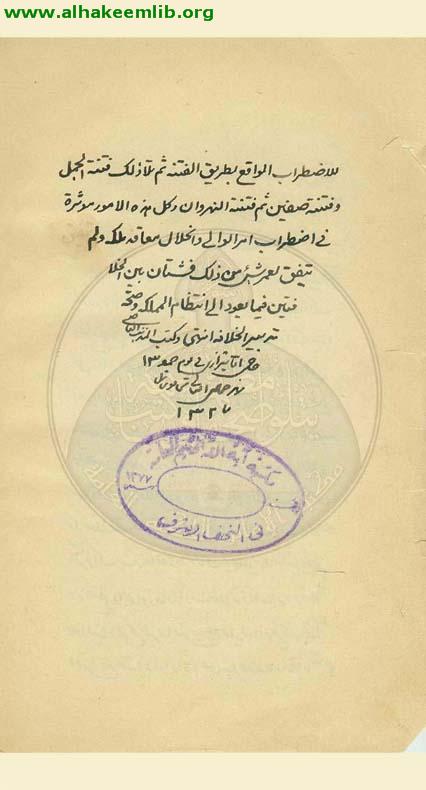 www.alhakeemlib.org
للاضطراب الواقع بطريق الفتنه ثم تلا ذلك فتنة الجمل
وفتنة صفين ثم فتنة النهروان وكل هذه الامور موثرة
في اضطراب امر الوالي وانحلال معاقد ملكه ولم
يتفق لعمر شئ من ذلك فشتان بين الخلا
فتين فيما يعود الى انتظام المملكه وصحة
تدبير الخلافه انتهى وكتب
في يوم
١٣٢٧
مكتبة آية الله الحكيم العامة
١٣٧٧
في النجف الاشرف